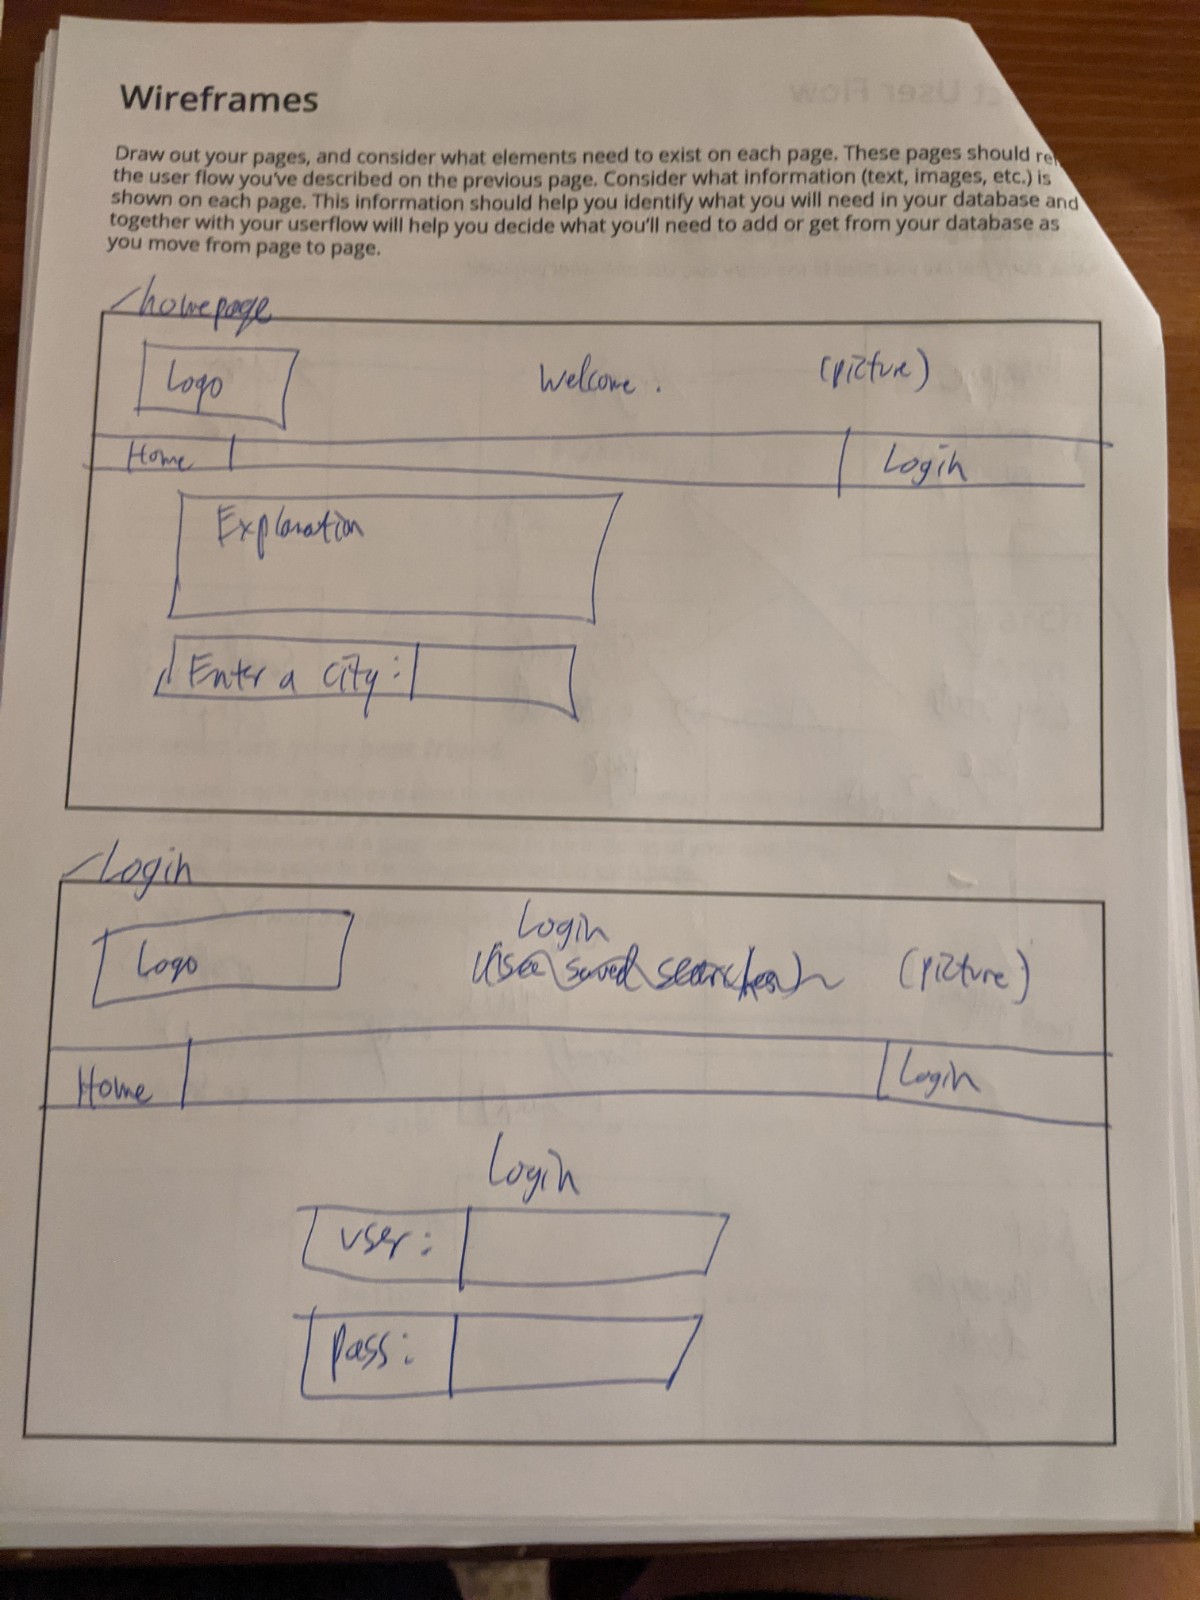 Wireframes
Draw out your pages, and consider what elements need to exist on each page. These pages should
the user flow you've described on the previous page. Consider what information (text, images, etc.) is
shown on each page. This information should help you identify what you will need in your database and
together with your userflow will help you decide what you'll need to add or get from your database as
you move from page to page.
/homepage
Logo Welcome. (picture)
Home Login
Explanation
Enter a city:
/Login
Login
Logo (see saved searches) (picture)
Home Login
Login
user:
pass: